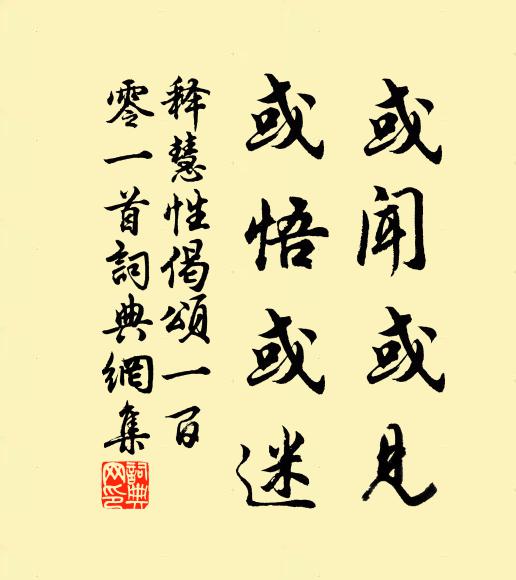 或闻或见
或悟或迷
释慧性偈颂一百
零一首詞典網集
詞典
网印